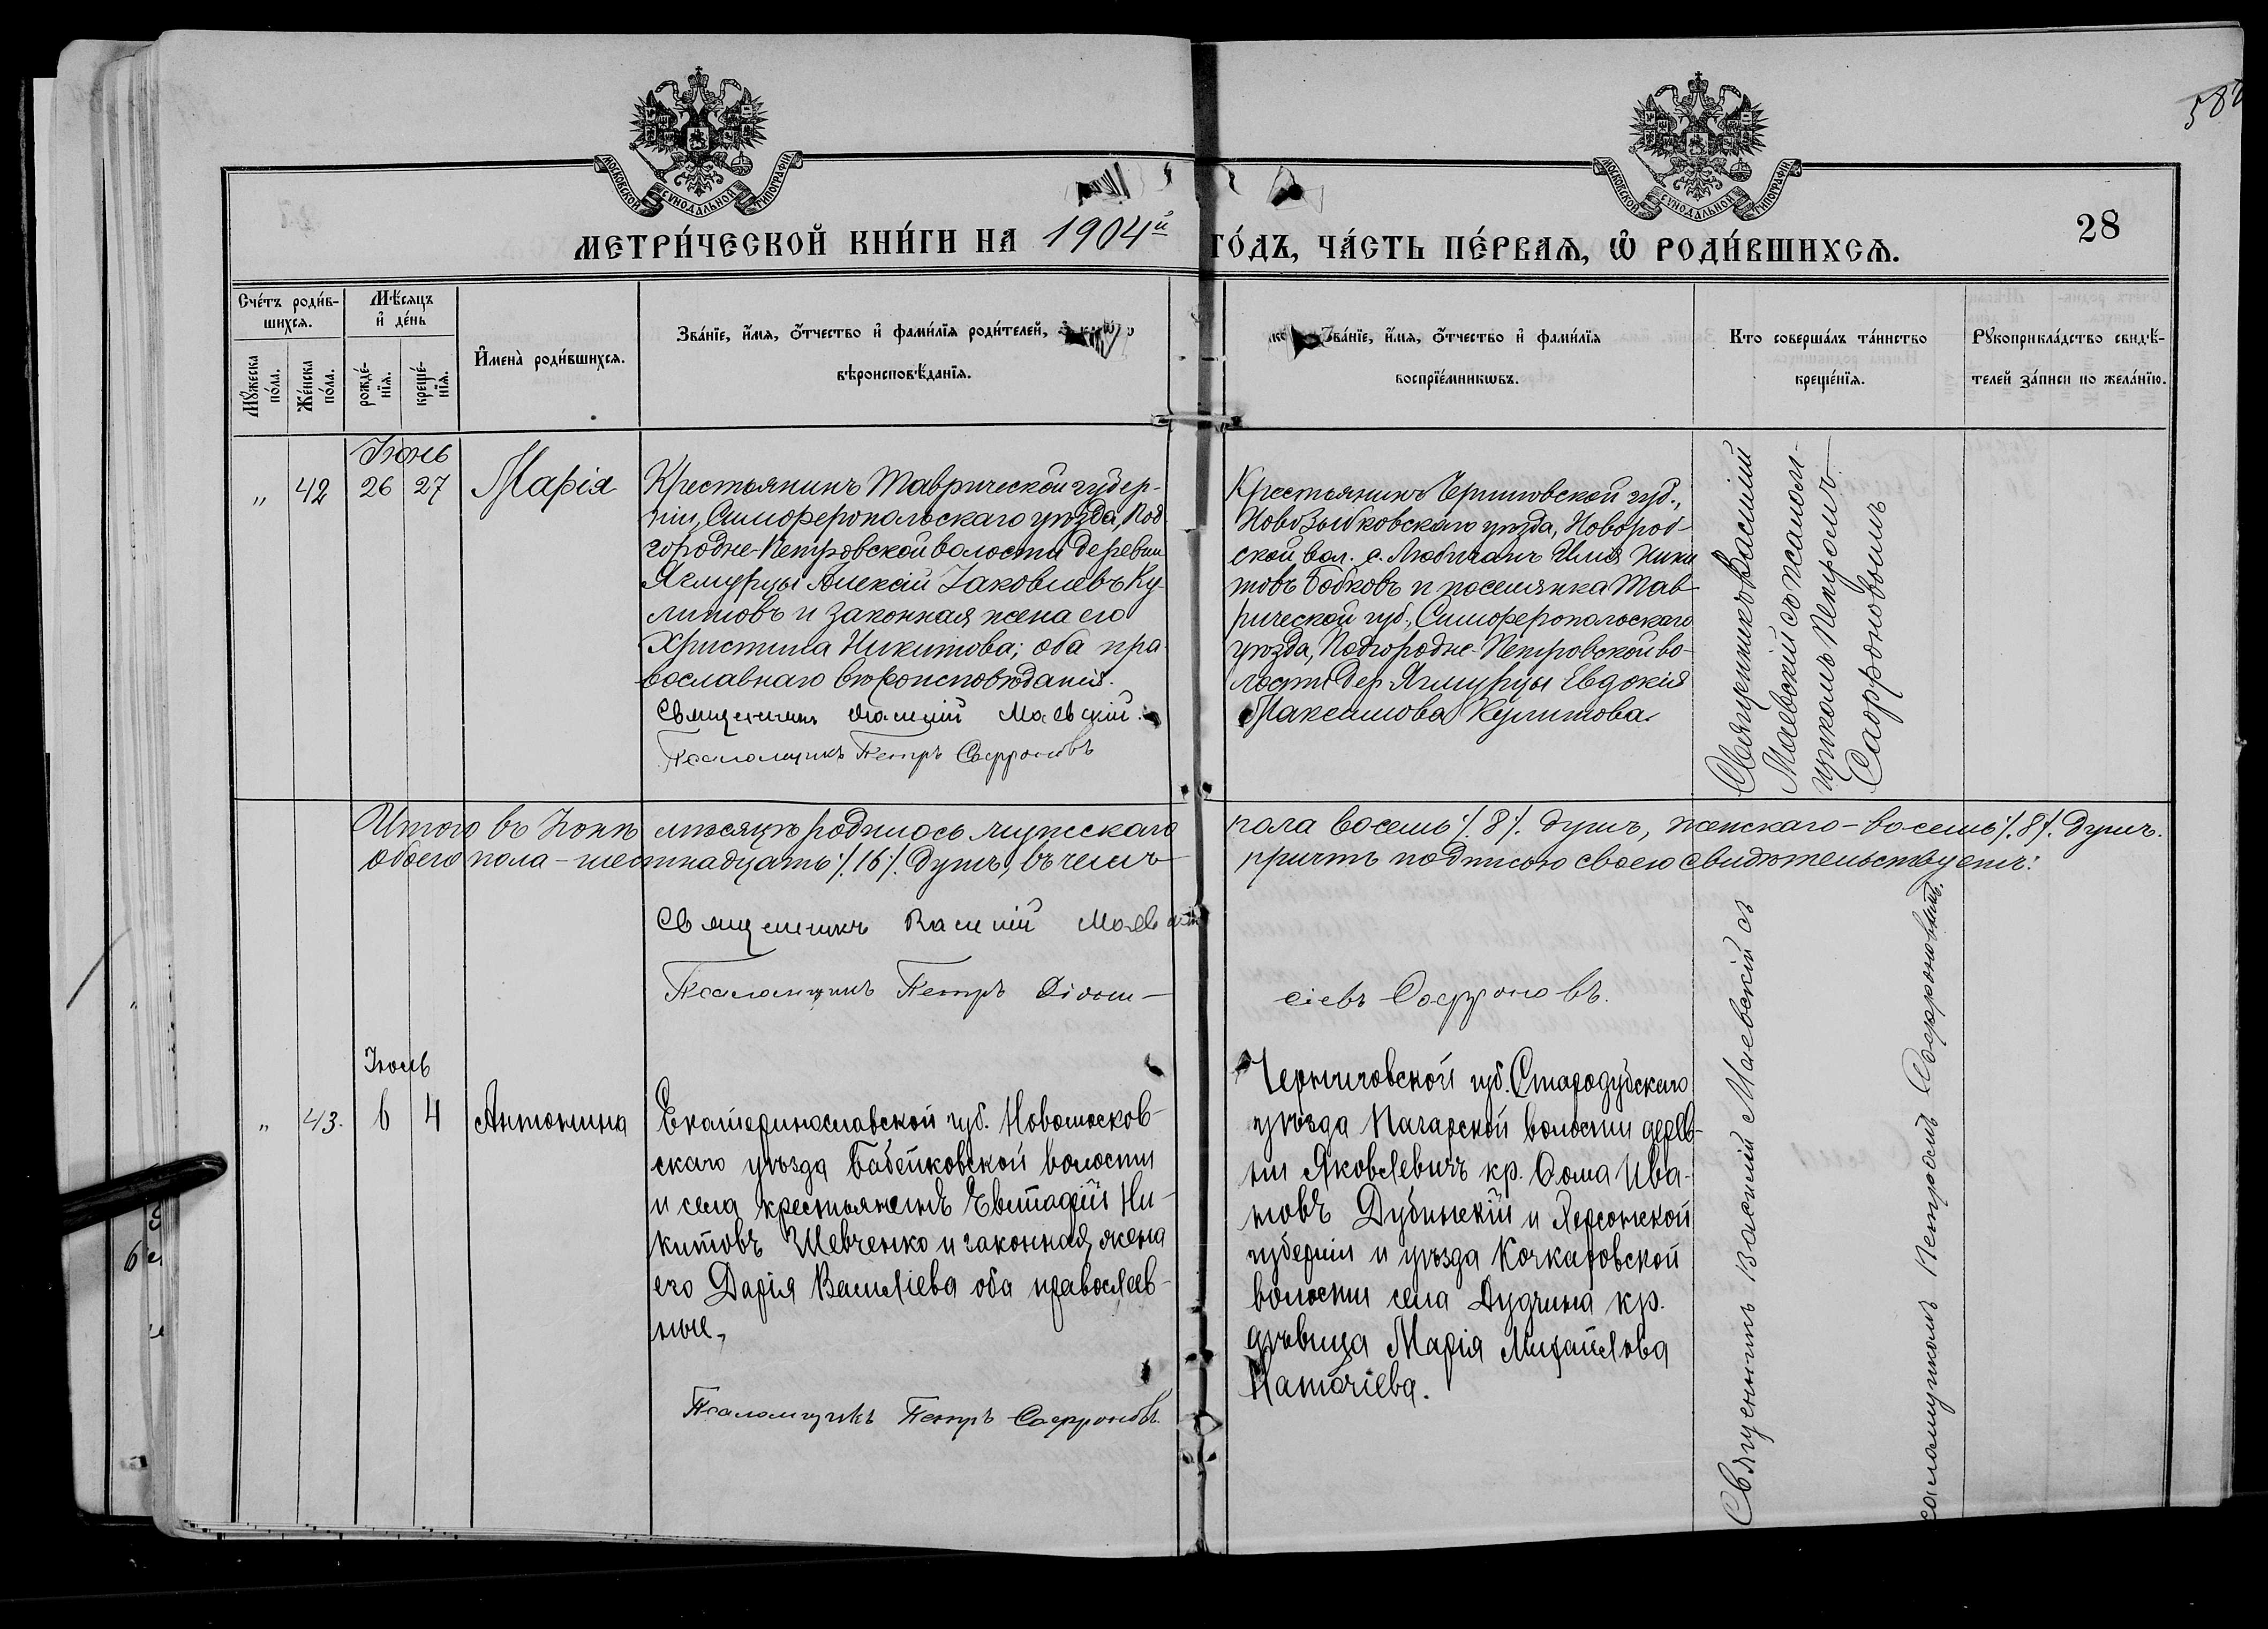 58
МОСКОВСКОЙ СѴНОДАЛЬНОЙ ТИПОГРАФІИ
МОСКОВСКОЙ СѴНОДАЛЬНОЙ ТИПОГРАФІИ
28
МЕТРИ́ЧЕСКОЙ КНИ́ГИ НА 1904й ГО́ДЪ, ЧА́СТЬ ПЕ́РВАѦ, Ѡ҆ РОДИ́ВШИХСѦ.
Сче́тъ роди́в-
шихсѧ.
Мꙋ́жеска по́ла.
Же́нска по́ла.
Мѣ́сѧцъ и҆ де́нь
рожде́-
нїѧ.
креще́-
нїѧ.
И҆мена̀ роди́вшихсѧ.
Зва́нїе, и҆́мѧ, ѻ҆́тчество и҆ фами́лїѧ роди́телей,
вѣроисповѣ́данїѧ.
Зва́нїе, и҆́мѧ, ѻ҆́тчество и҆ фами́лїѧ
воспрїе́мникѡвъ.
Кто соверша́лъ та́инство
креще́нїѧ.
Рꙋкоприкла́дство свидѣ́-
телей за́писи по жела́нїю.
Іюнь
„ 42 26 27 Марія
Крестьянинъ Таврической губер-
ніи, Симферопольскаго уѣзда, Под-
городне-Петровской волости деревни
Ягмурцы Алексій Іаковлевъ Ку-
литовъ и законная жена его
Христина Никитова; оба пра-
вославнаго вѣроисповѣданія.
Священникъ Василій Маевскій.
Псаломщикъ Петръ Софроновъ
Крестьянинъ Черниговской губ.,
Новозыбковскаго уѣзда, Новороб-
ской вол. с. Любичанъ Илія Ники
товъ Бобковъ и поселянка Тав-
рической губ., Симферопольскаго
уѣзда, Подгородне-Петровской во-
лости дер. Ягмурцы Евдокія
Максимова Кулитова.
Священникъ Василій
Маевскій съ псалом-
щикомъ Петромъ
Софроновымъ
Итого въ Іюнѣ мѣсяцѣ родилось мужскаго пола восемь /. 8 /. душъ, женскаго – восемь /. 8 /. душъ.
обоего пола – шестнадцать /. 16 /. душъ, въ чемъ причтъ подписью своею свидѣтельствуетъ:
Священникъ Василій Маевскій
Псаломщикъ Петръ сіевъ Софроновъ.
Іюль
„ 43. 4 Антонина
Екатеринославской губ. Новомосков-
скаго уѣзда Бабейковской волости
и села крестьянинъ Евстафій Ни-
китовъ Шевченко и законная жена
его Дарія Василіева оба православ-
ные.
Псаломщикъ Петръ Софроновъ.
Черниговской губ. Стародубскаго
уѣзда Пагарской волости дерев-
ни Яковлевичъ кр. Ѳома Ива-
новъ Дубинскій и Херсонской
губерніи и уѣзда Качкаровской
волости села Дудчина кр.
дѣвица Марія Михайлова
Священникъ Василій Маевскій съ
псаломщикомъ Петромъ Софроновымъ.